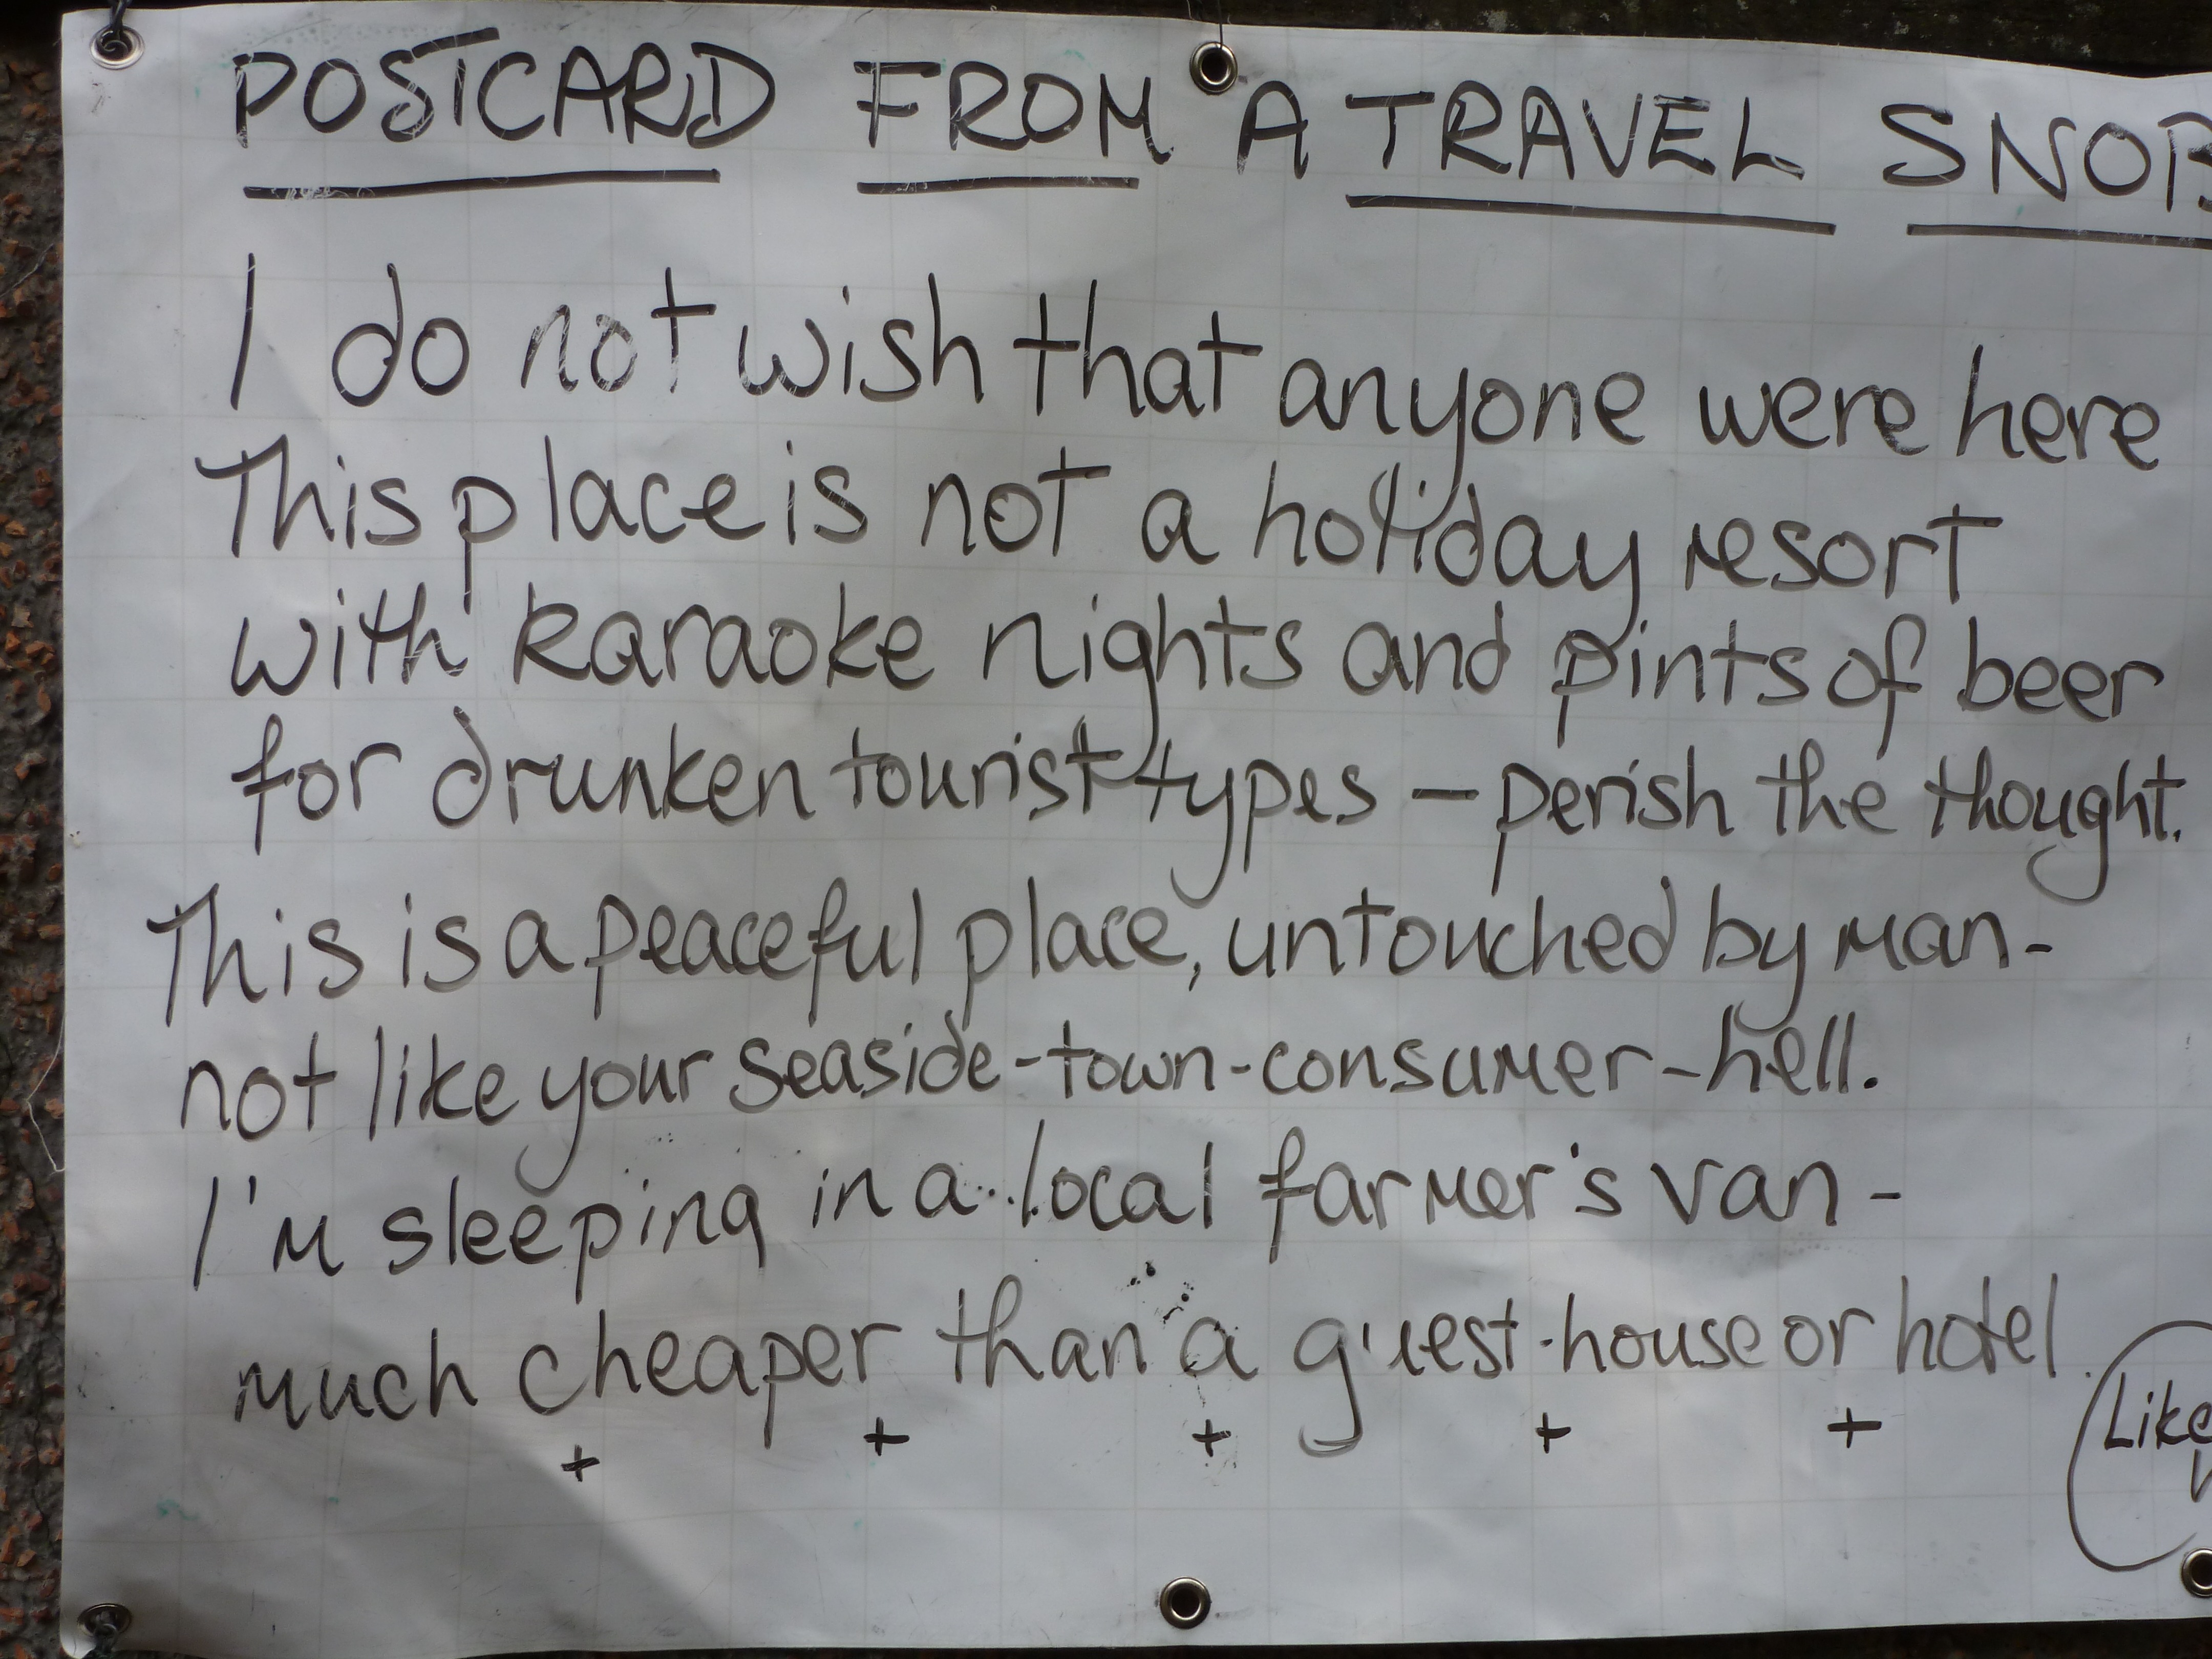 POSTCARD FROM A TRAVEL SNOB
I do not wish that anyone were here
This place is not a holiday resort
with karaoke nights and pints of beer
for drunken tourist types – perish the thought.
This is a peaceful place, untouched by man -
not like your seaside-town-consumer-hell.
I'm sleeping in a local farmer's van -
much cheaper than a guest-house or hotel.
+ + + + +
Like